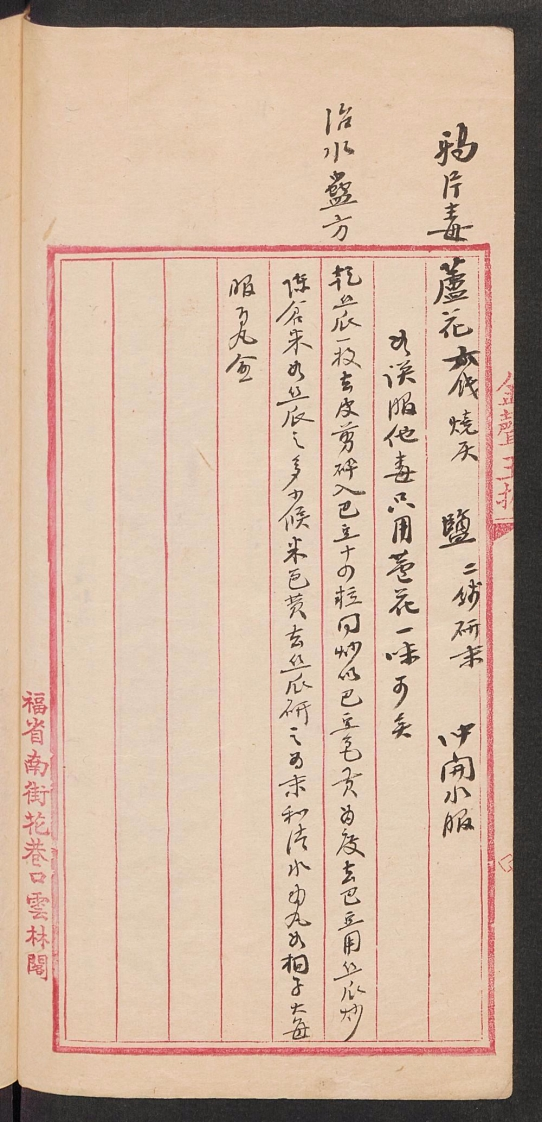 鴉片毒 蘆花 五錢 燒灰 鹽 二錢 研末 沖開水服
如誤服他毒只用蘆花一味可矣
治水蠱方
乾丝瓜一枚去皮剪碎入巴豆十四粒同炒以巴豆色黄為度去巴豆用丝瓜炒
陳倉米如丝瓜之多少候米色黄去丝瓜研之為末和清水為丸如桐子大每
服百丸金
福省南街花巷口雲林閣